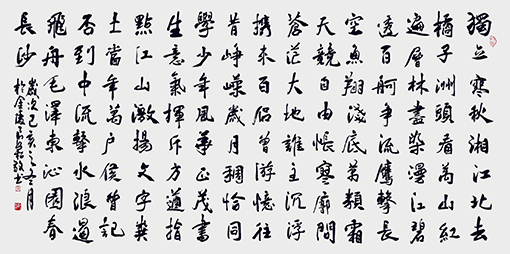 獨立寒秋湘江北去
橘子洲頭看萬山紅
遍層林盡染漫江碧
透百舸爭流鷹擊長
空魚翔淺底萬類霜
天競自由悵寥廓問
蒼茫大地誰主沉浮
攜來百侶曾游憶往
昔崢嶸歲月稠恰同
學少年風華正茂書
生意氣揮斥方遒指
點江山激揚文字糞
土當年萬戶侯曾記
否到中流擊水浪遏
飛舟毛澤東沁園春
長沙
歲次己亥之冬月
於金陵